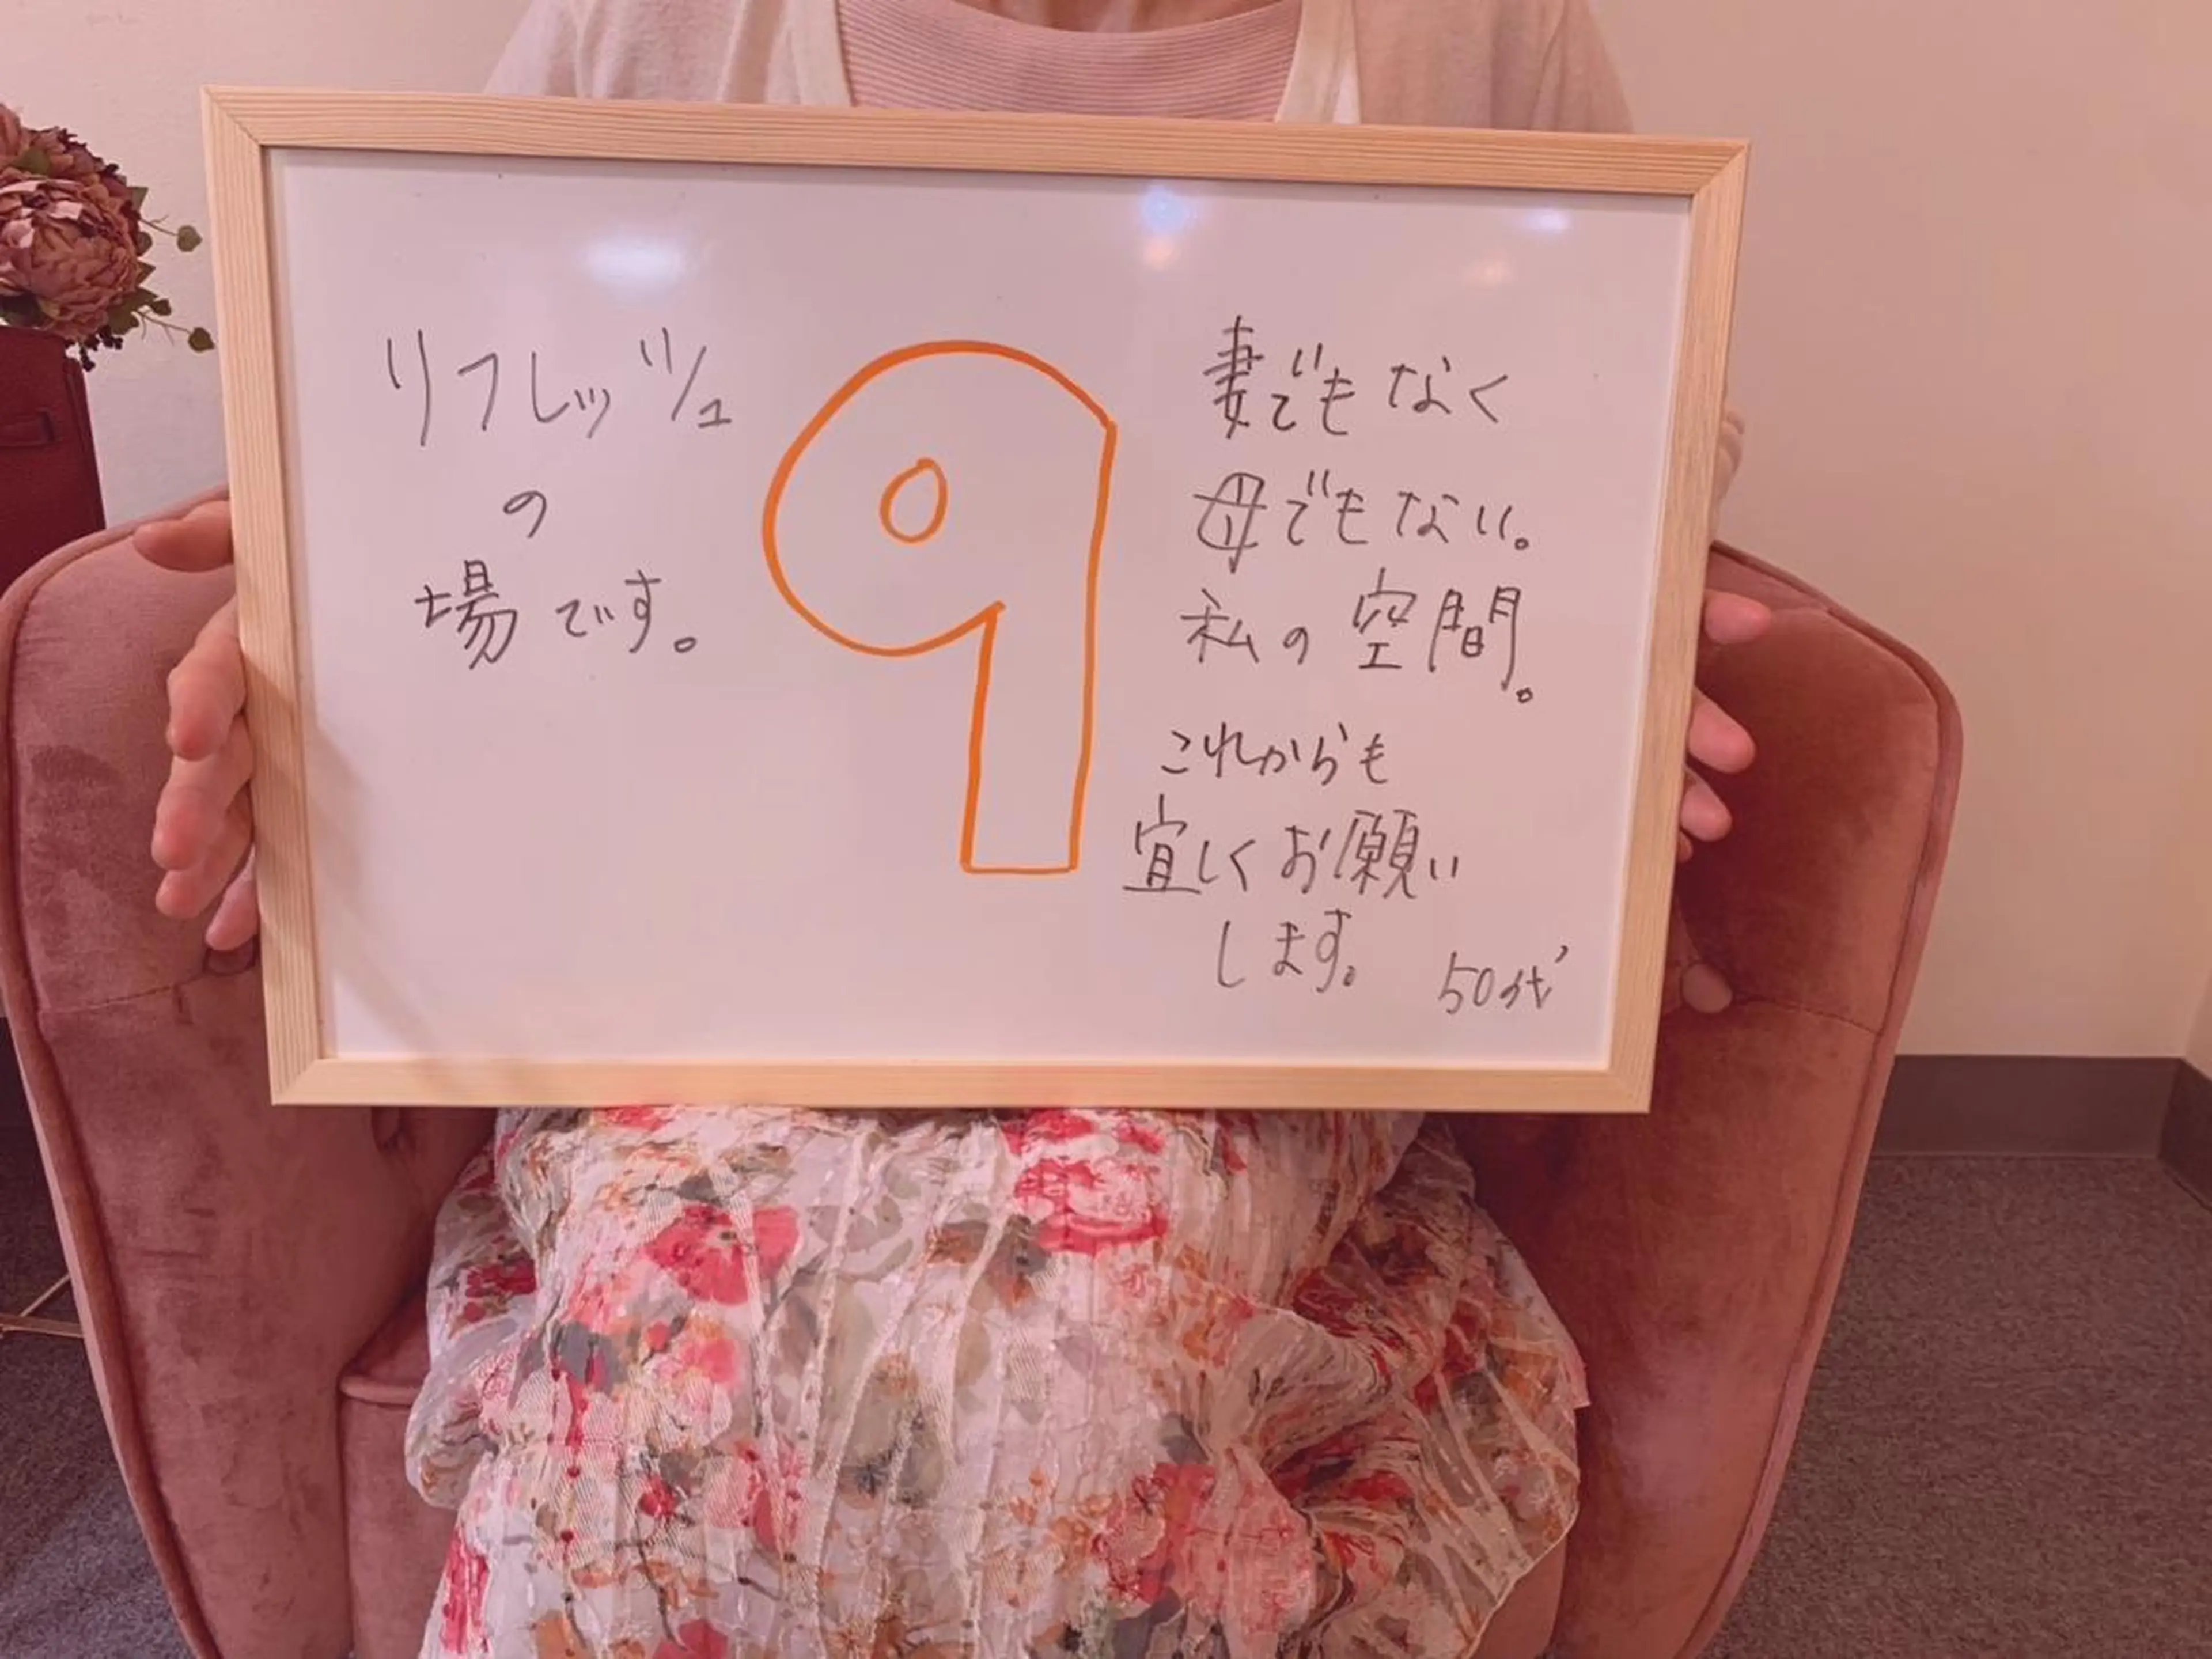 リフレッシュ
の
場です。
9
妻でもなく
母でもない。
私の空間。
これからも
宜しくお願い
します。
50代